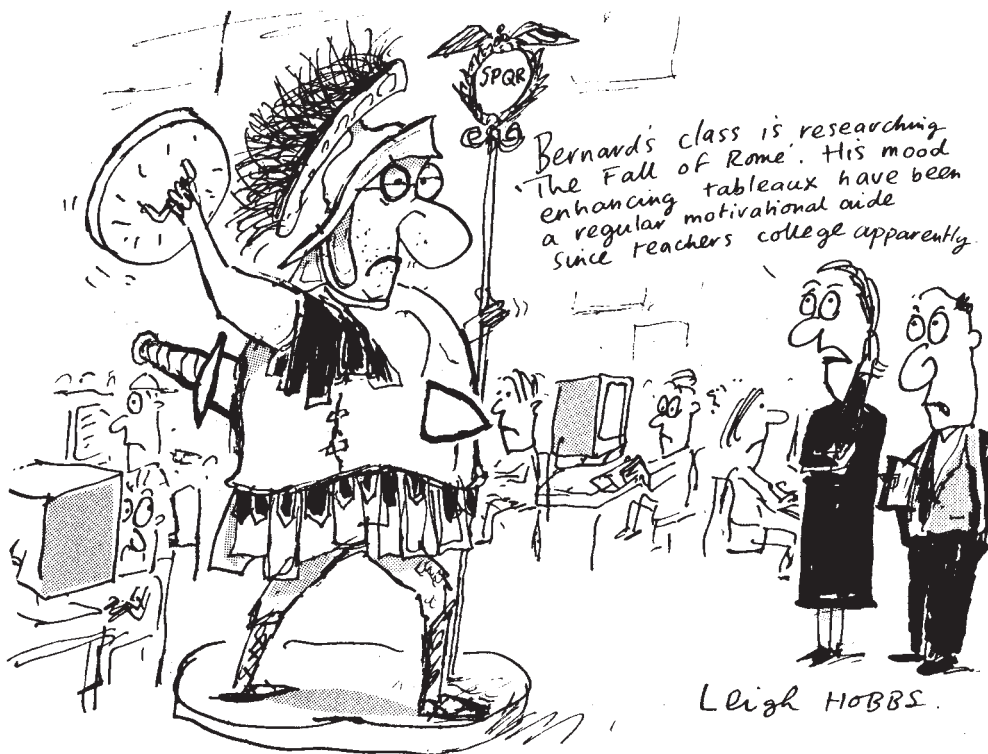 SPQR
Bernard's class is researching
'The Fall of Rome'. His mood
enhancing tableaux have been
a regular motivational aide
since teachers college apparently.
Leigh HOBBS.